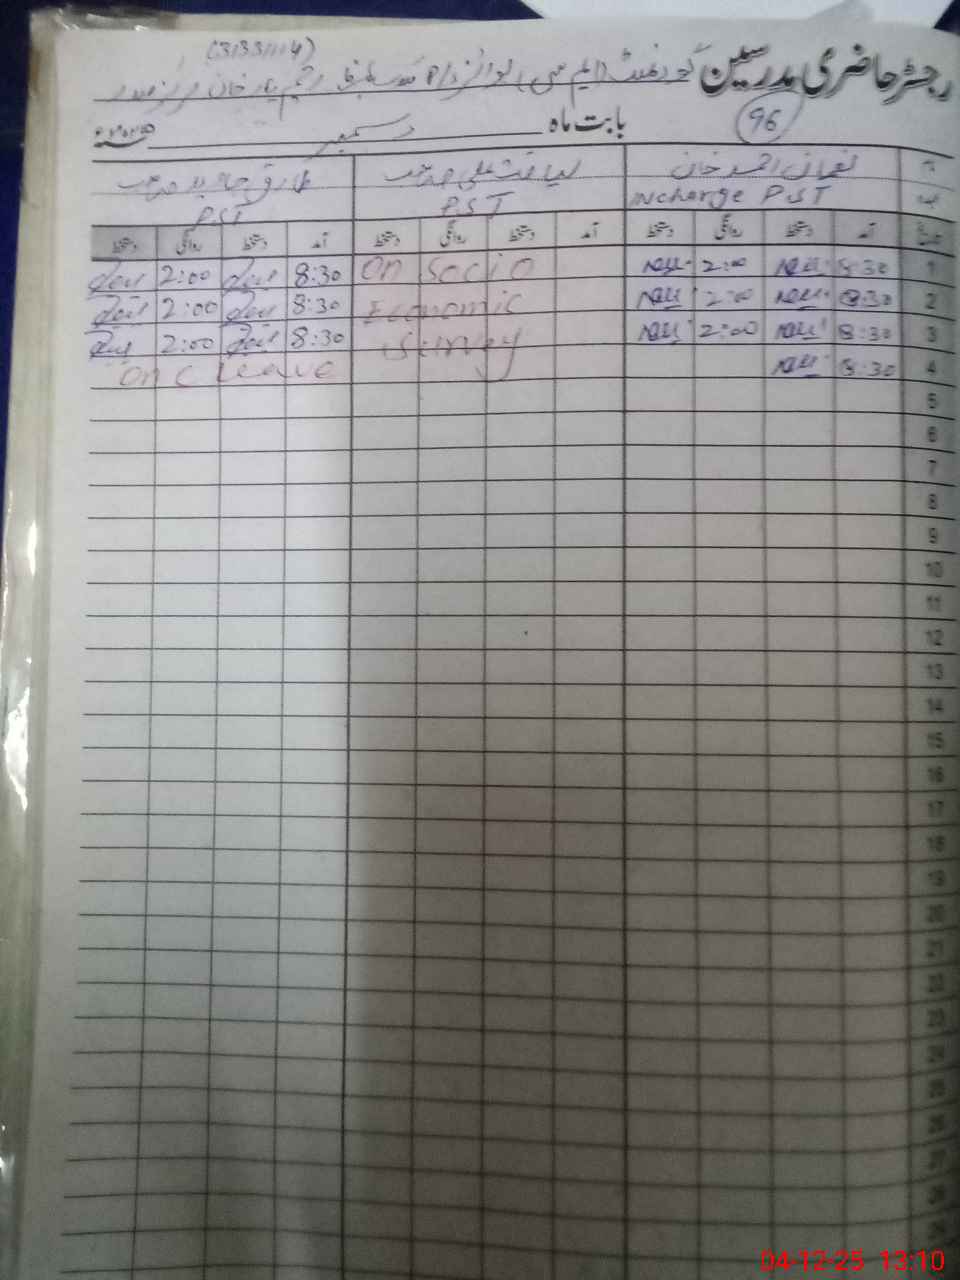 (31331114)
رجسٹر حاضری مدرسین گورنمنٹ (ایم سی) بوائز رحیم یار خان
96
بابت ماہ دسمبر
نعمان احمد خان
لیاقت علی صاحب
طارق جاوید صاحب
Incharge PST
PST
PST
آمد دستخط روانگی دستخط آمد دستخط روانگی دستخط آمد دستخط روانگی دستخط
1 8:30 2:00 On Socio 8:30 2:00
2 8:30 2:00 Economic 8:30 2:00
3 8:30 2:00 Survey 8:30 2:00
4 8:30 On C leave
5
6
7
8
9
10
11
12
13
14
15
16
17
18
19
20
21
22
23
24
25
26
27
28
04-12-25 13:10